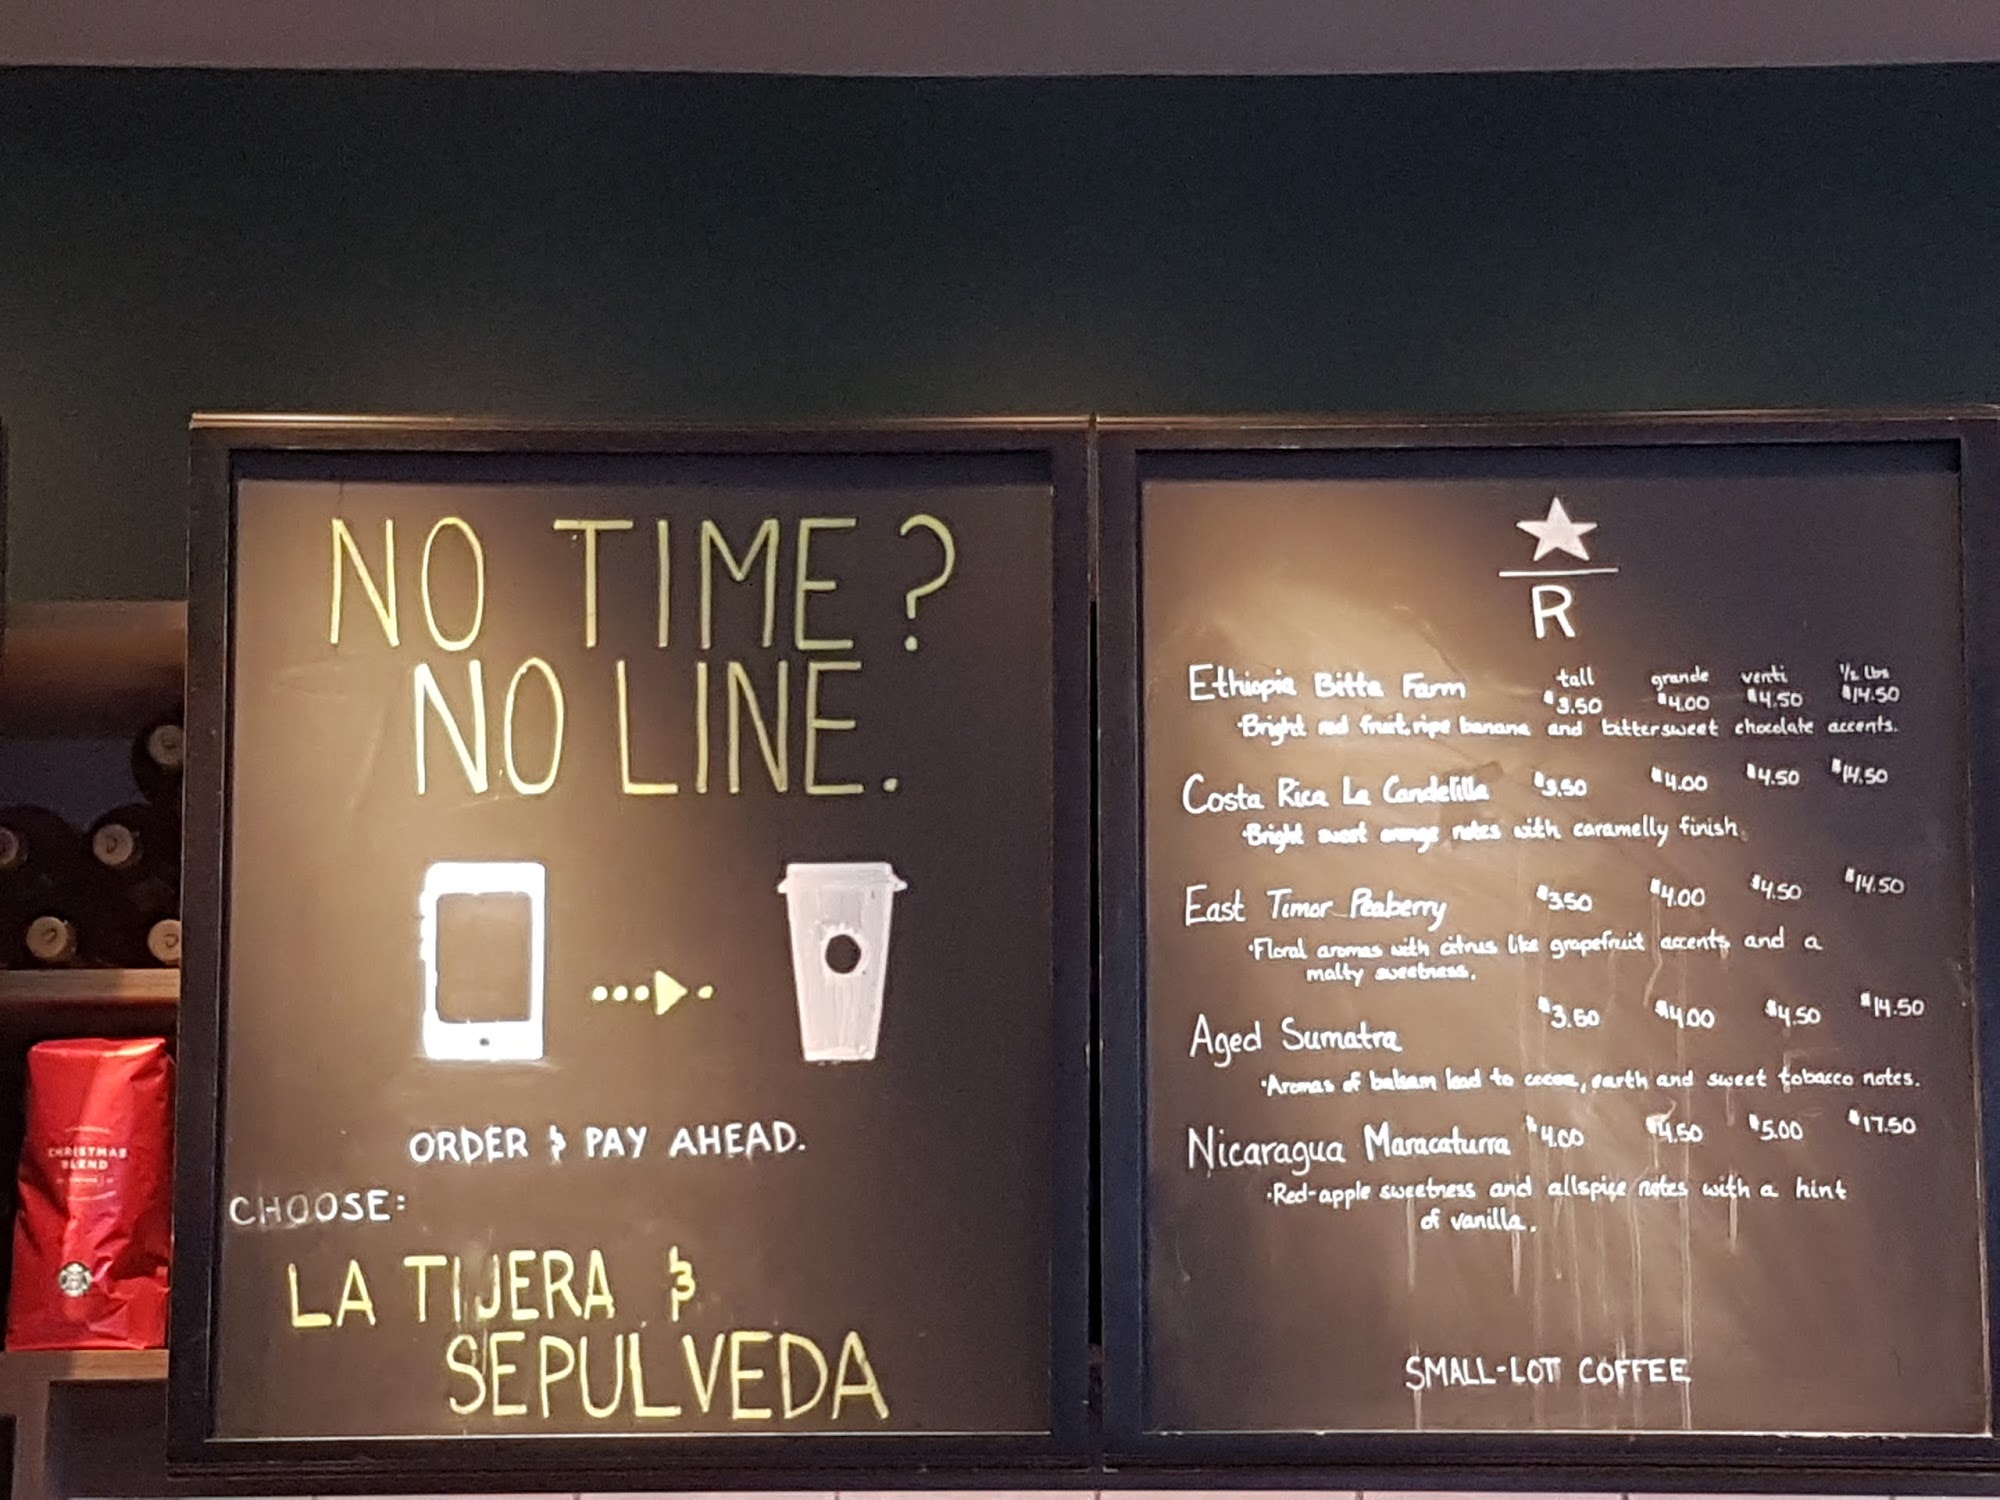 NO TIME?
NO LINE.
ORDER & PAY AHEAD.
CHOOSE:
LA TIJERA &
SEPULVEDA
CHRISTMAS
BLEND
R
tall grande venti 1/2 lbs
Ethiopia Bitta Farm $3.50 $4.00 $4.50 $14.50
·Bright red fruit, ripe banana and bittersweet chocolate accents.
Costa Rica La Candelilla $3.50 $4.00 $4.50 $14.50
·Bright sweet orange notes with caramelly finish.
East Timor Peaberry $3.50 $4.00 $4.50 $14.50
·Floral aromas with citrus like grapefruit accents and a
malty sweetness.
Aged Sumatra $3.50 $4.00 $4.50 $14.50
·Aromas of balsam lead to cocoa, earth and sweet tobacco notes.
Nicaragua Maracaturra $4.00 $4.50 $5.00 $17.50
·Red-apple sweetness and allspice notes with a hint
of vanilla.
SMALL-LOT COFFEE